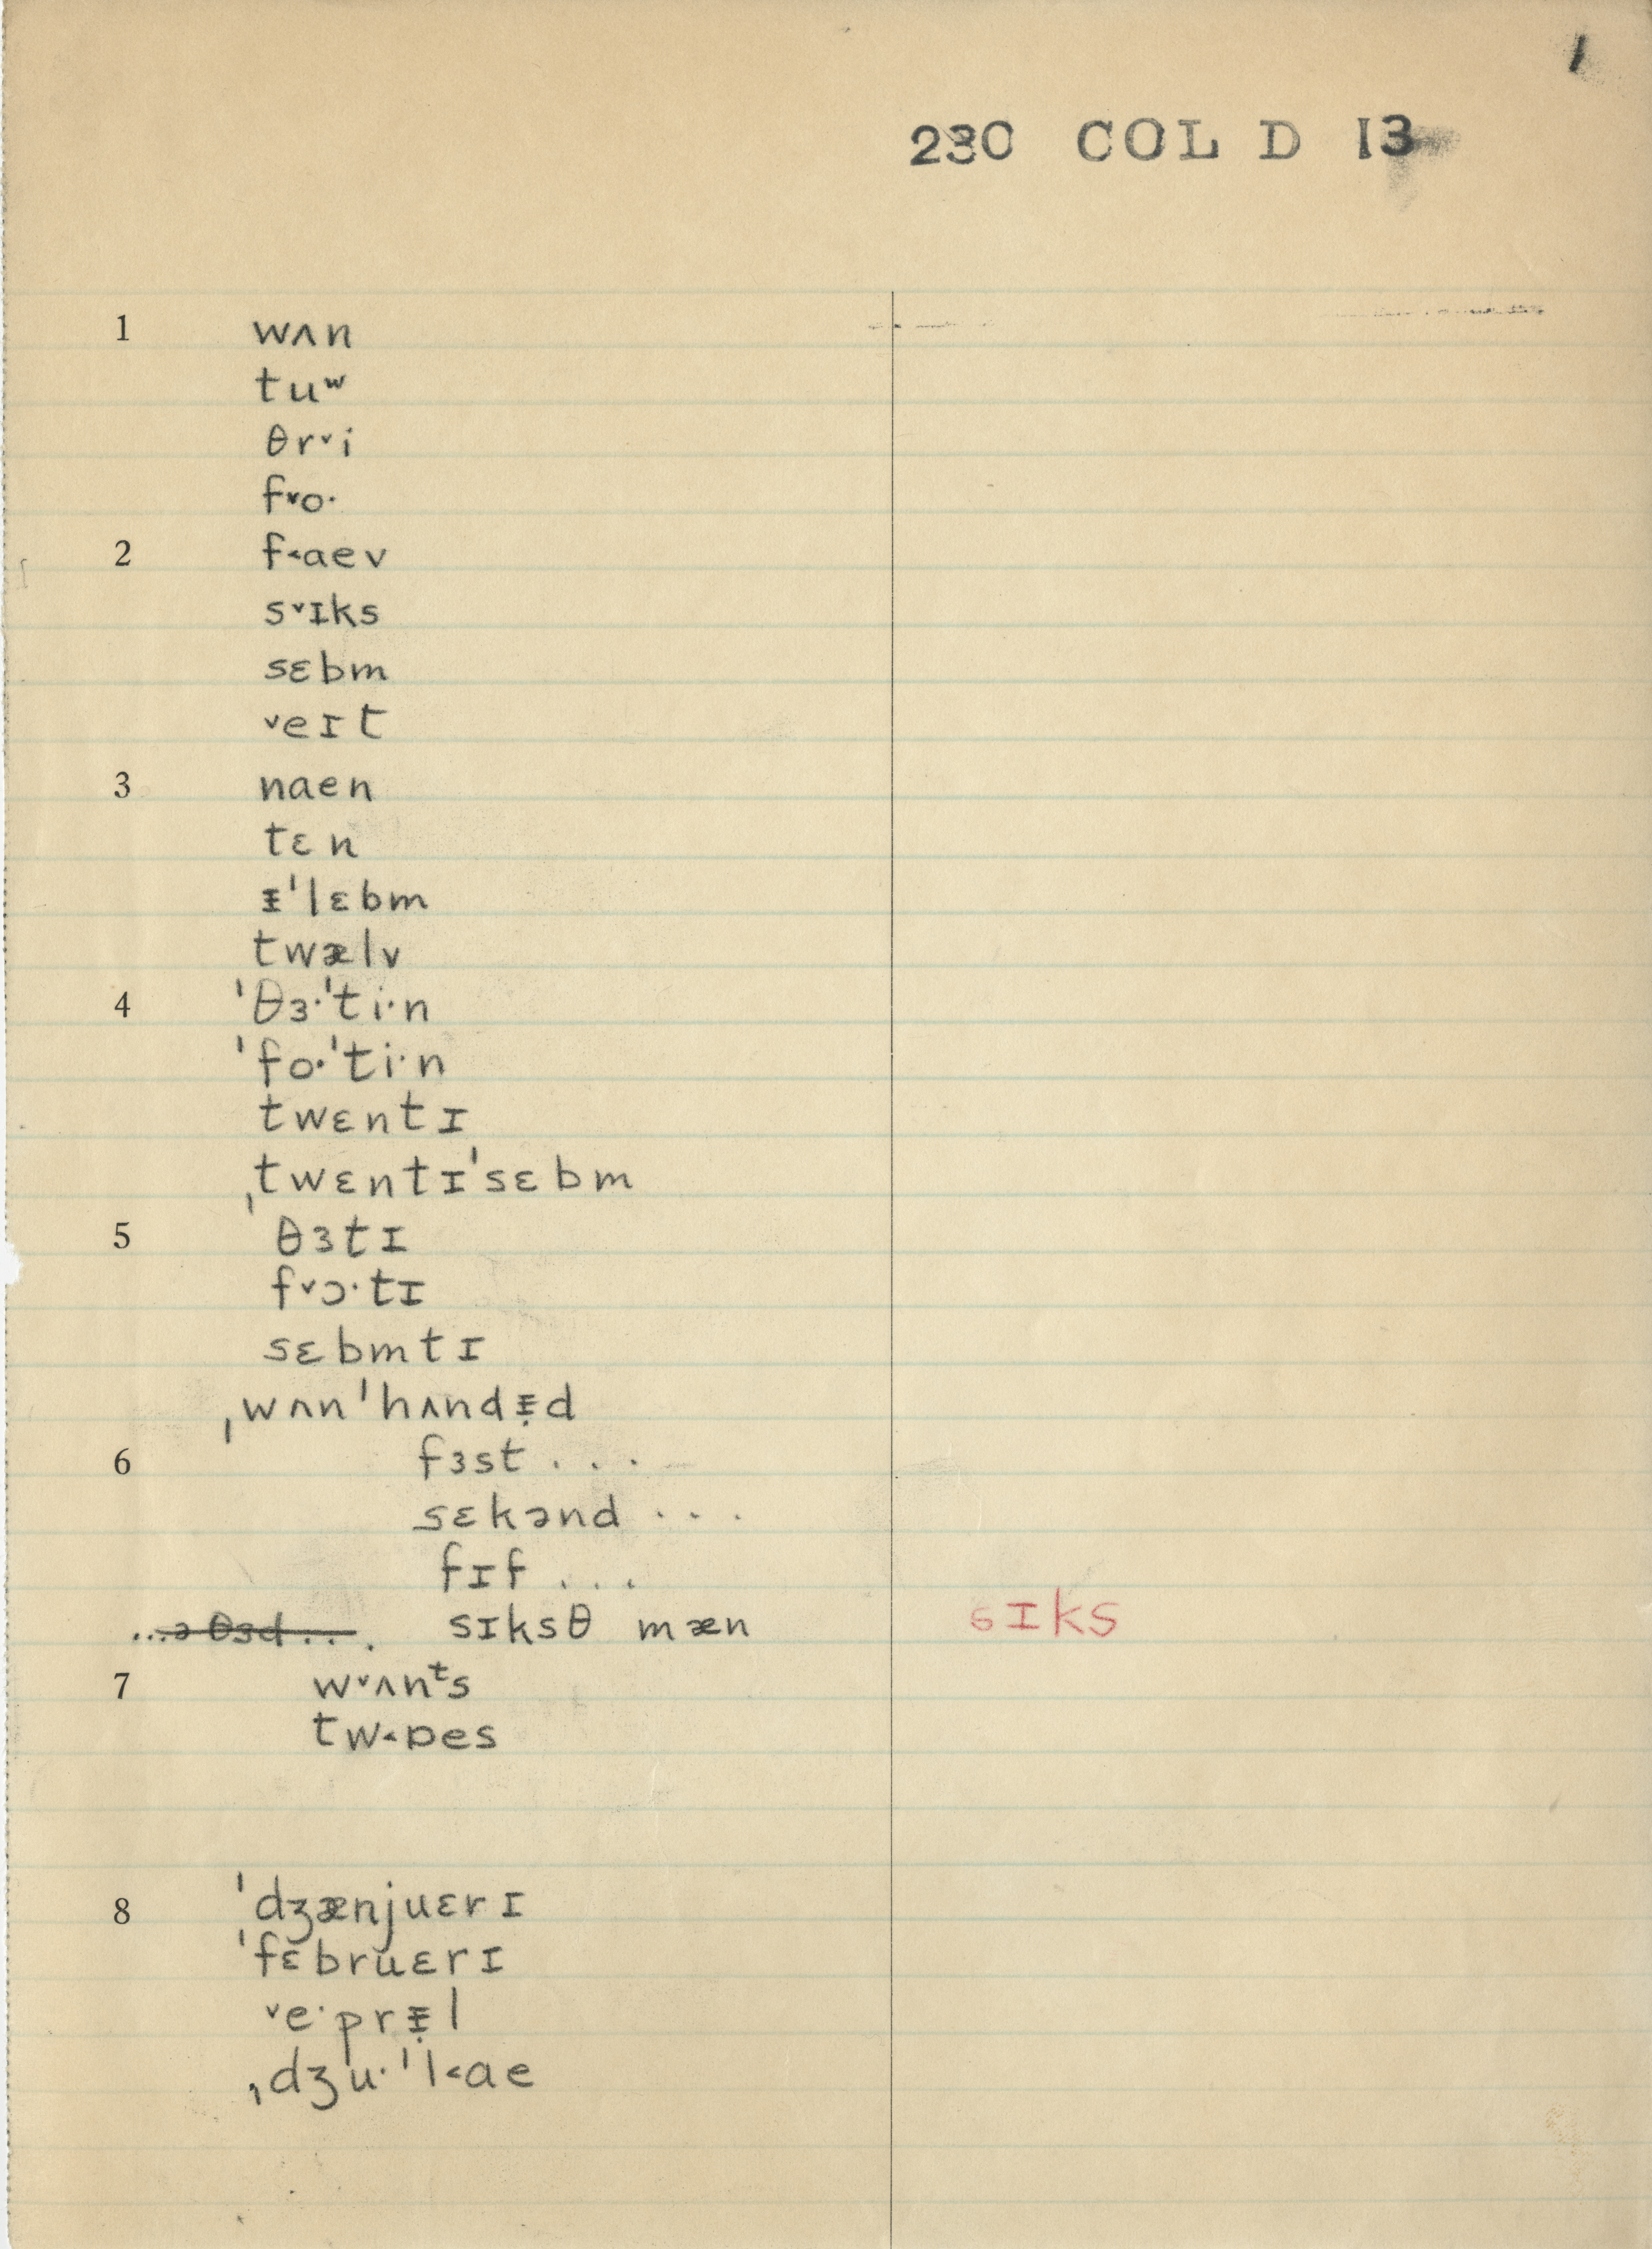 1
230 COL D 13
1 wʌn
tuʷ
θr˅i
f˅o·
2 f˂aev
s˅ɪks
sɛbm
˅eɪt
3 naen
tɛn
ᵻˈlɛbm
twælv
4 ˈθɜ·ˈti·n
ˈfo·ˈti·n
twɛntɪ
ˌtwɛntɪˈsɛbm
5 θɜtɪ
f˅ɔ·tɪ
sɛbmtɪ
ˌwʌnˈhʌndᵻ̣d
6 fɜst . . .
sɛkənd . . .
fɪf . . .
...ə θɜd . . . . sɪksθ mæn sɪks
7 w˅ʌnᵗs
tw˂ɒes
8 ˈdʒænjuɛrɪ
ˈfɛbruɛrɪ
˅e·prᵻ̣l
ˌdʒu·ˈl˂ae